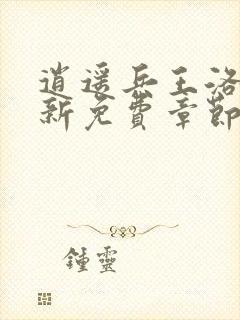 逍遥兵王洛
新免費章節
鍾靈